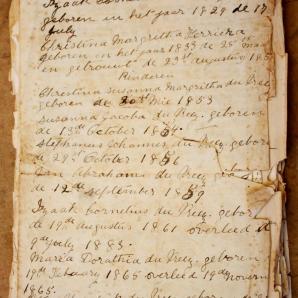 Izaak
geboren in het jaar 1829 de 17
July
Christina Margritta
geboren en het jaar 1833 de 25st
en getrouwt de 23st augustus 185
Kinderen
Christina susanna Margritha du Preez
geboren de 20ste Mie 1853
susanna Jacoba du Preez, geboren
de 13de October 1854.
stephanus Johannes du Preez. gebor
de 29st October 1856
Jan Abrahamus du Preez
de 12de september 1859
Izaak Cornelius du Preez, gebor
de 19de Augustus 1861 overleed d
9de July 1883.
Maria Dorathea du Preez. geboren
19de Febuary 1865 overleed 19de Novem
1865.
du Preez